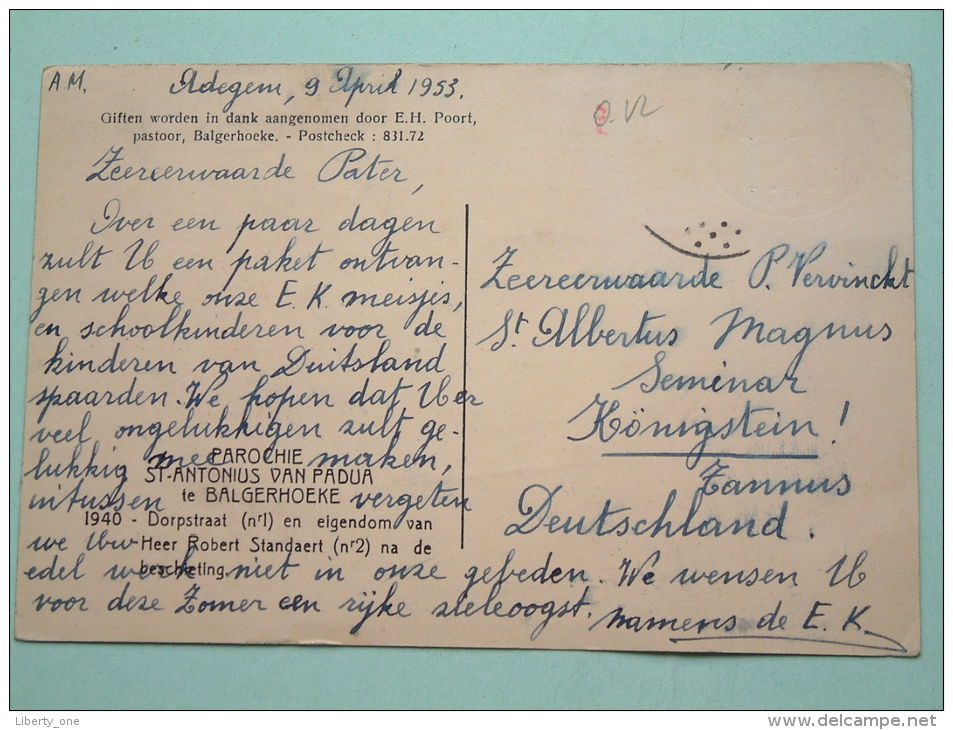 A.M.
Adegem, 9 April 1953.
Giften worden in dank aangenomen door E.H. Poort,
pastoor, Balgerhoeke. - Postcheck : 831.72
Zeereerwaarde Pater,
Over een paar dagen
zult U een paket ontvan-
gen welke onze E. K. meisjes,
en schoolkinderen voor de
kinderen van Duitsland
spaarden. We hopen dat U er
veel ongelukkigen zult ge-
lukkig mee maken,
intussen vergeten
we Uw
edel werk niet in onze gebeden. We wensen U
voor deze Zomer een rijke zieleoogst.
namens de E. K.
PAROCHIE
ST-ANTONIUS VAN PADUA
te BALGERHOEKE
1940 - Dorpstraat (nr1) en eigendom van
Heer Robert Standaert (nr2) na de
beschieting.
Zeereerwaarde P. Vervinckt
St Albertus Magnus
Seminar
Königstein!
Tannus
Deutschland.
Liberty_one